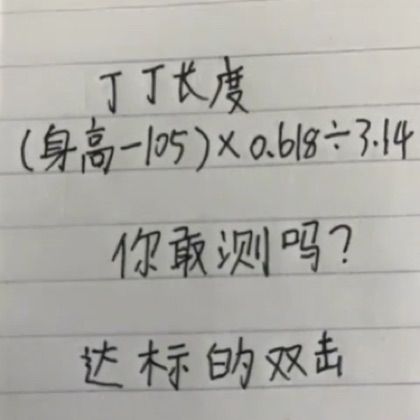 丁丁长度
(身高-105)×0.618÷3.14
你敢测吗?
达标的双击